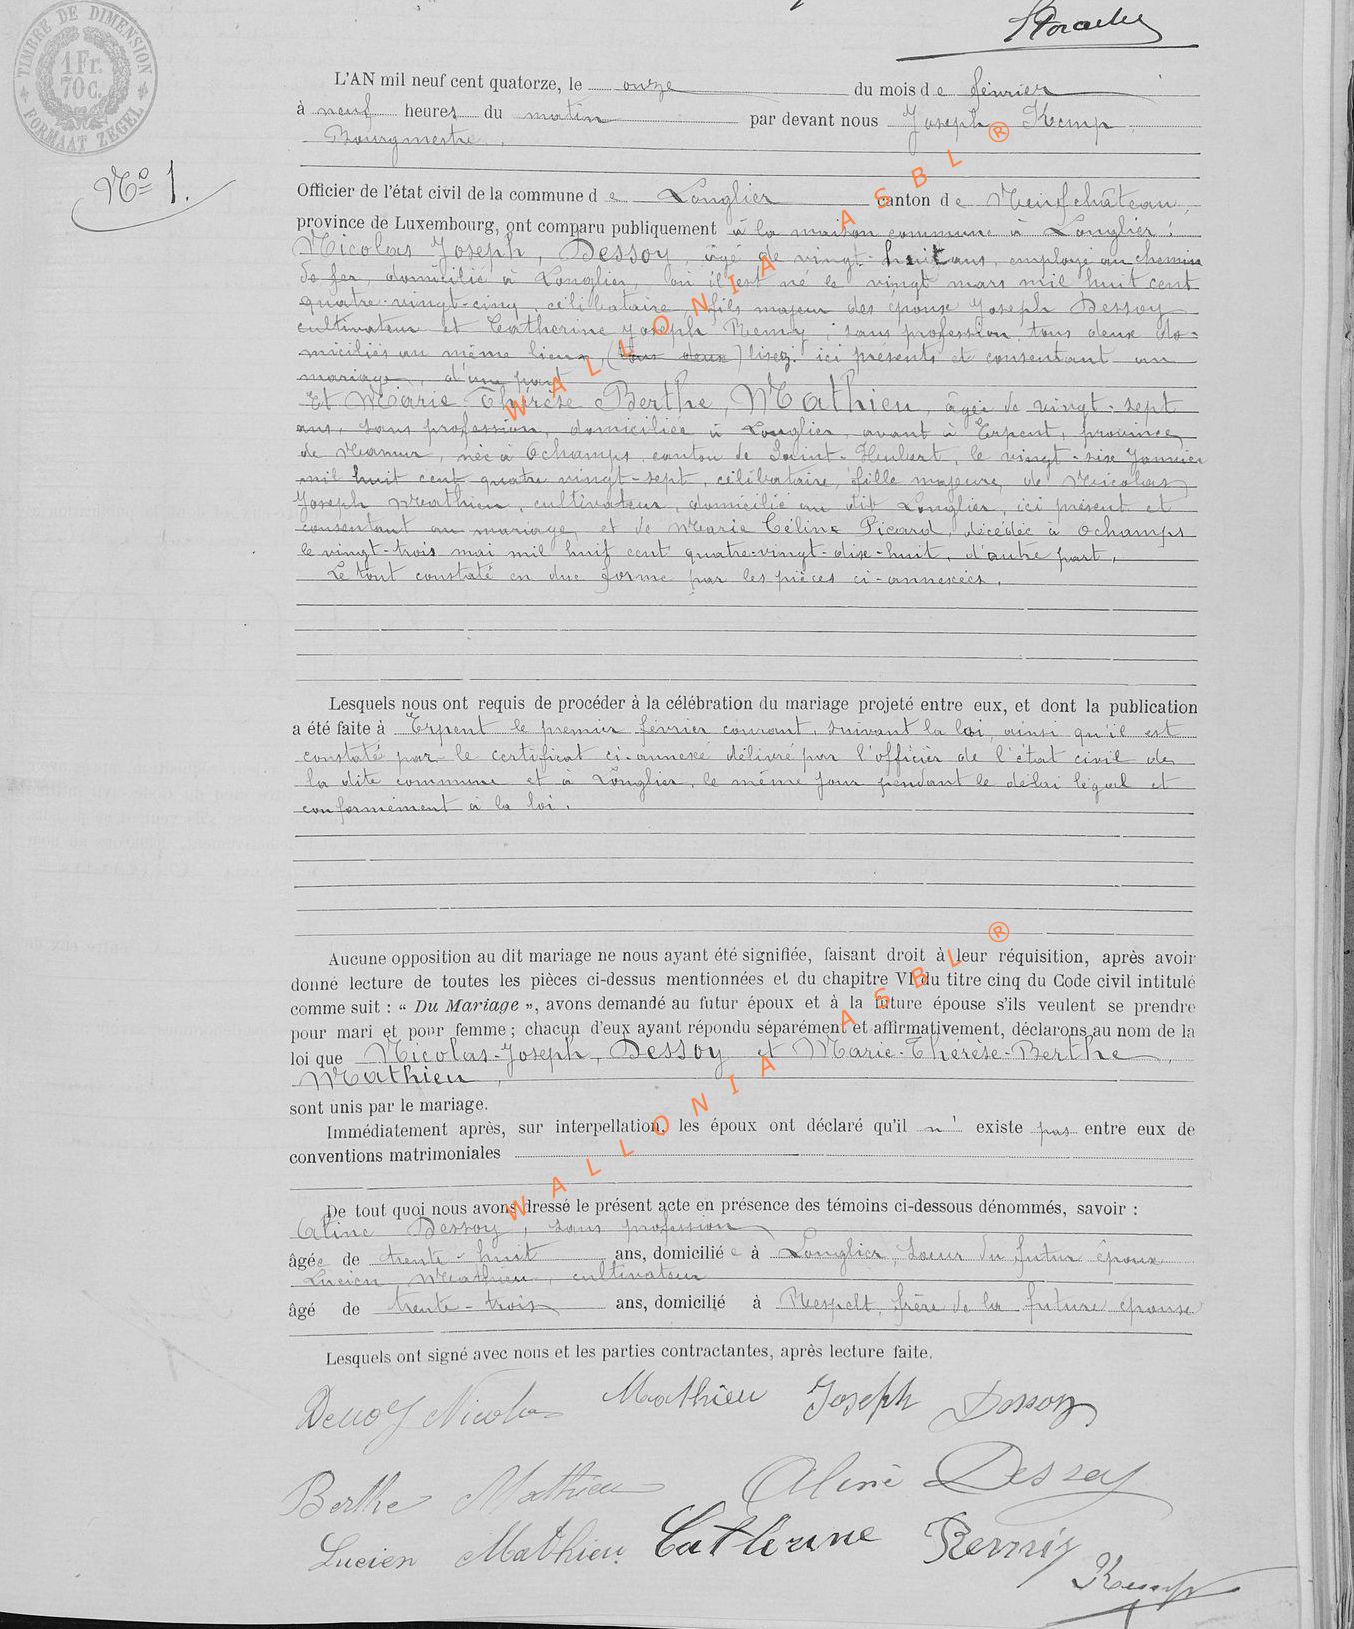 TIMBRE DE DIMENSION
1 Fr.
70 C.
FORMAAT ZEGEL
L'AN mil neuf cent quatorze, le onze du mois de février
à neuf heures du matin par devant nous Joseph Kemp
Bourgmestre,
Nº 1.
Officier de l'état civil de la commune de Longlier canton de Neufchâteau,
province de Luxembourg, ont comparu publiquement à la maison commune à Longlier :
Nicolas Joseph, Dessoy, âgé de vingt-huit ans, employé au chemin
de fer, domicilié à Longlier, où il est né le vingt mars mil huit cent
quatre-vingt-cinq, célibataire, fils majeur des époux Joseph Dessoy
cultivateur et Catherine Joseph Remy, sans profession, tous deux do-
miciliés au même lieux, (tous deux) lisez: ici présents et consentant au
mariage, d'une part
Et Marie Thérèse Berthe, Mathieu, âgée de vingt-sept
ans, sans profession, domiciliée à Longlier, avant à Erpent, province
de Namur, née à Ochamps, canton de Saint-Hubert, le vingt-six Janvier
mil huit cent quatre vingt-sept, célibataire, fille majeure, de Nicolas
Joseph Mathieu, cultivateur, domicilié au dit Longlier, ici présent et
consentant au mariage, et de Marie Céline Picard, décédée à Ochamps
le vingt-trois mai mil huit cent quatre-vingt-dix-huit, d'autre part,
Le tout constaté en due forme par les pièces ci-annexées.
Lesquels nous ont requis de procéder à la célébration du mariage projeté entre eux, et dont la publication
a été faite à Erpent le premier février courant, suivant la loi, ainsi qu'il est
constaté par le certificat ci-annexé délivré par l'officier de l'état civil de
la dite commune et à Longlier, le même jour pendant le délai légal et
conformément à la loi.
Aucune opposition au dit mariage ne nous ayant été signifiée, faisant droit à leur réquisition, après avoir
donné lecture de toutes les pièces ci-dessus mentionnées et du chapitre VI du titre cinq du Code civil intitulé
comme suit : « Du Mariage », avons demandé au futur époux et à la future épouse s'ils veulent se prendre
pour mari et pour femme ; chacun d'eux ayant répondu séparément et affirmativement, déclarons au nom de la
loi que Nicolas-Joseph, Dessoy et Marie-Thérèse-Berthe,
Mathieu,
sont unis par le mariage.
Immédiatement après, sur interpellation, les époux ont déclaré qu'il n' existe pas entre eux de
conventions matrimoniales
De tout quoi nous avons dressé le présent acte en présence des témoins ci-dessous dénommés, savoir :
Aline Dessoy, sans profession
âgée de trente-huit ans, domiciliée à Longlier, soeur du futur époux
Lucien, Mathieu, cultivateur
âgé de trente-trois ans, domicilié à Respelt, frère de la future épouse
Lesquels ont signé avec nous et les parties contractantes, après lecture faite.
Dessoy Nicolas Mathieu Joseph Dessoy
Berthe Mathieu Aline Dessoy
Lucien Mathieu Catherine Remy
Kemp
WALLONIA ASBL ®
WALLONIA ASBL ®